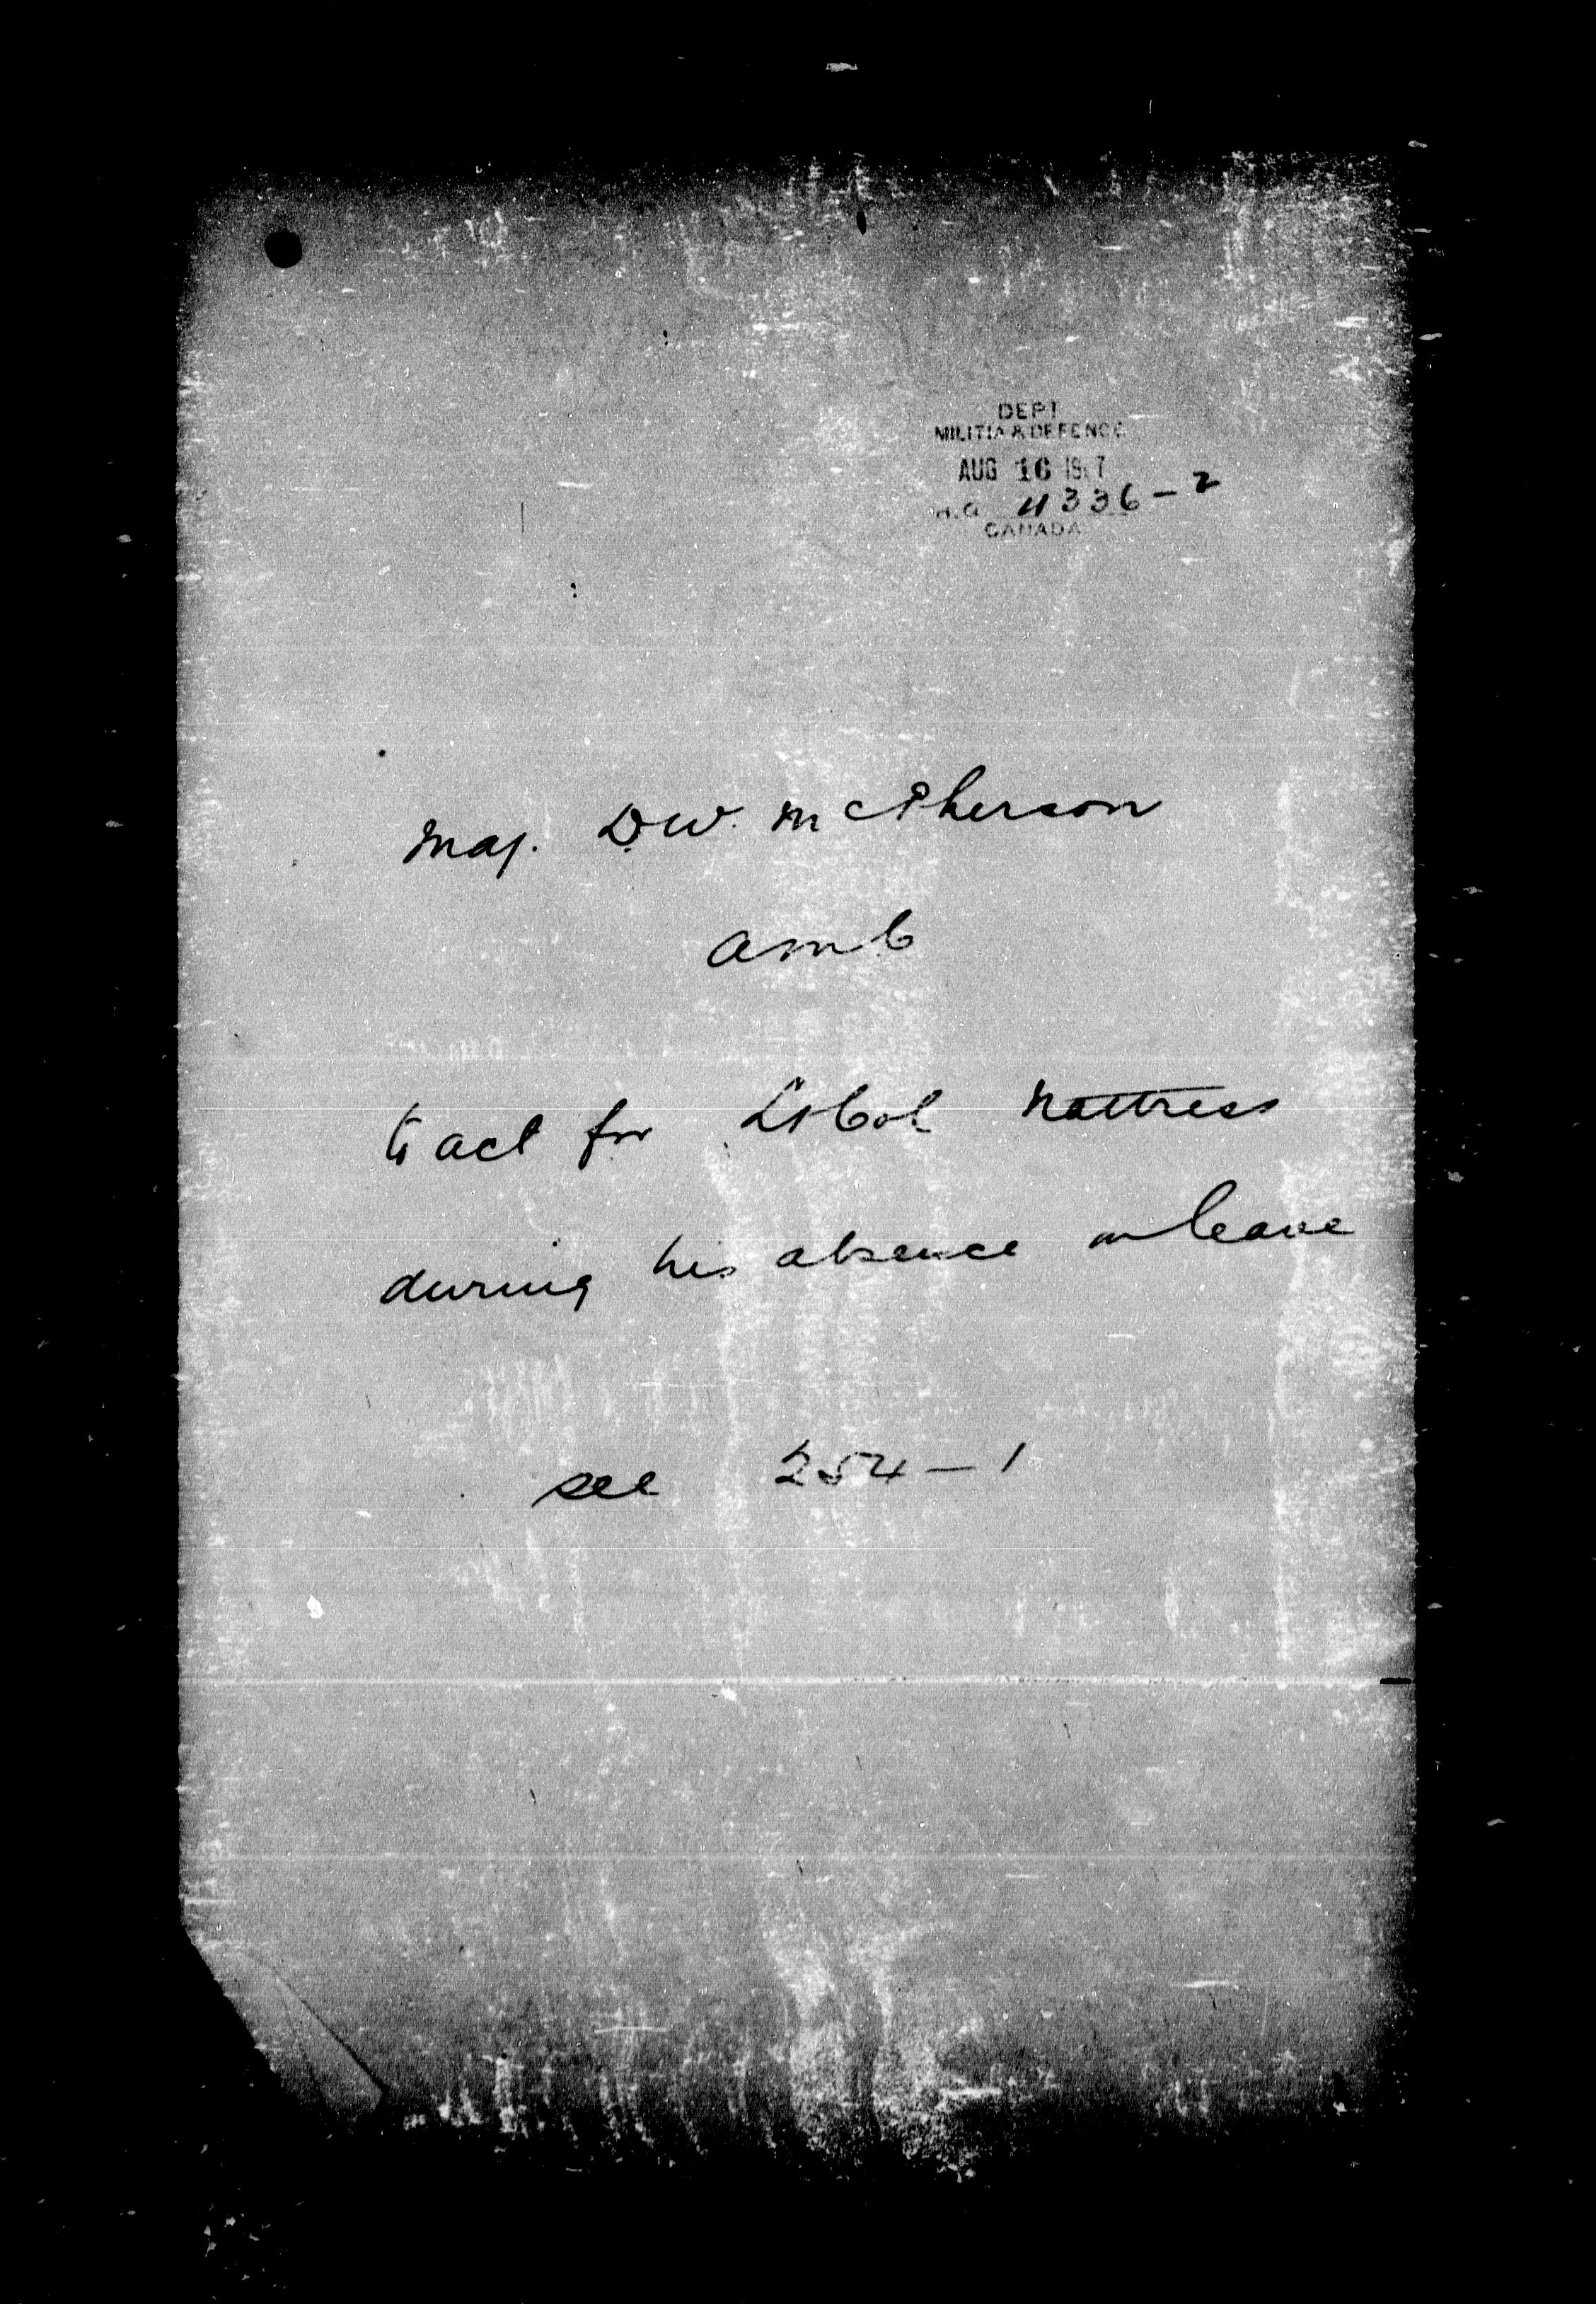 DEPT
MILITIA & DEFENCE
AUG 16 1907
H.Q. 4336-2
CANADA
Maj. D.W. McPherson
A.M.C
to act for Lt Col Nattress
during his absence on leave
see 254-1